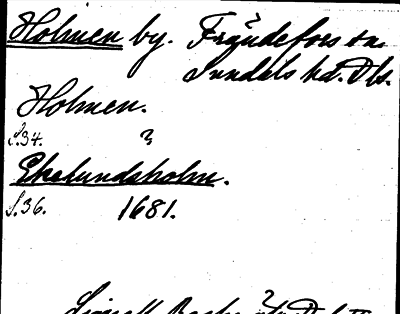 Holmen by. Frändefors sn.
Sundals hd. Dls.
Holmen.
S.34. ?
Ekelundsholm.
S.36. 1681.